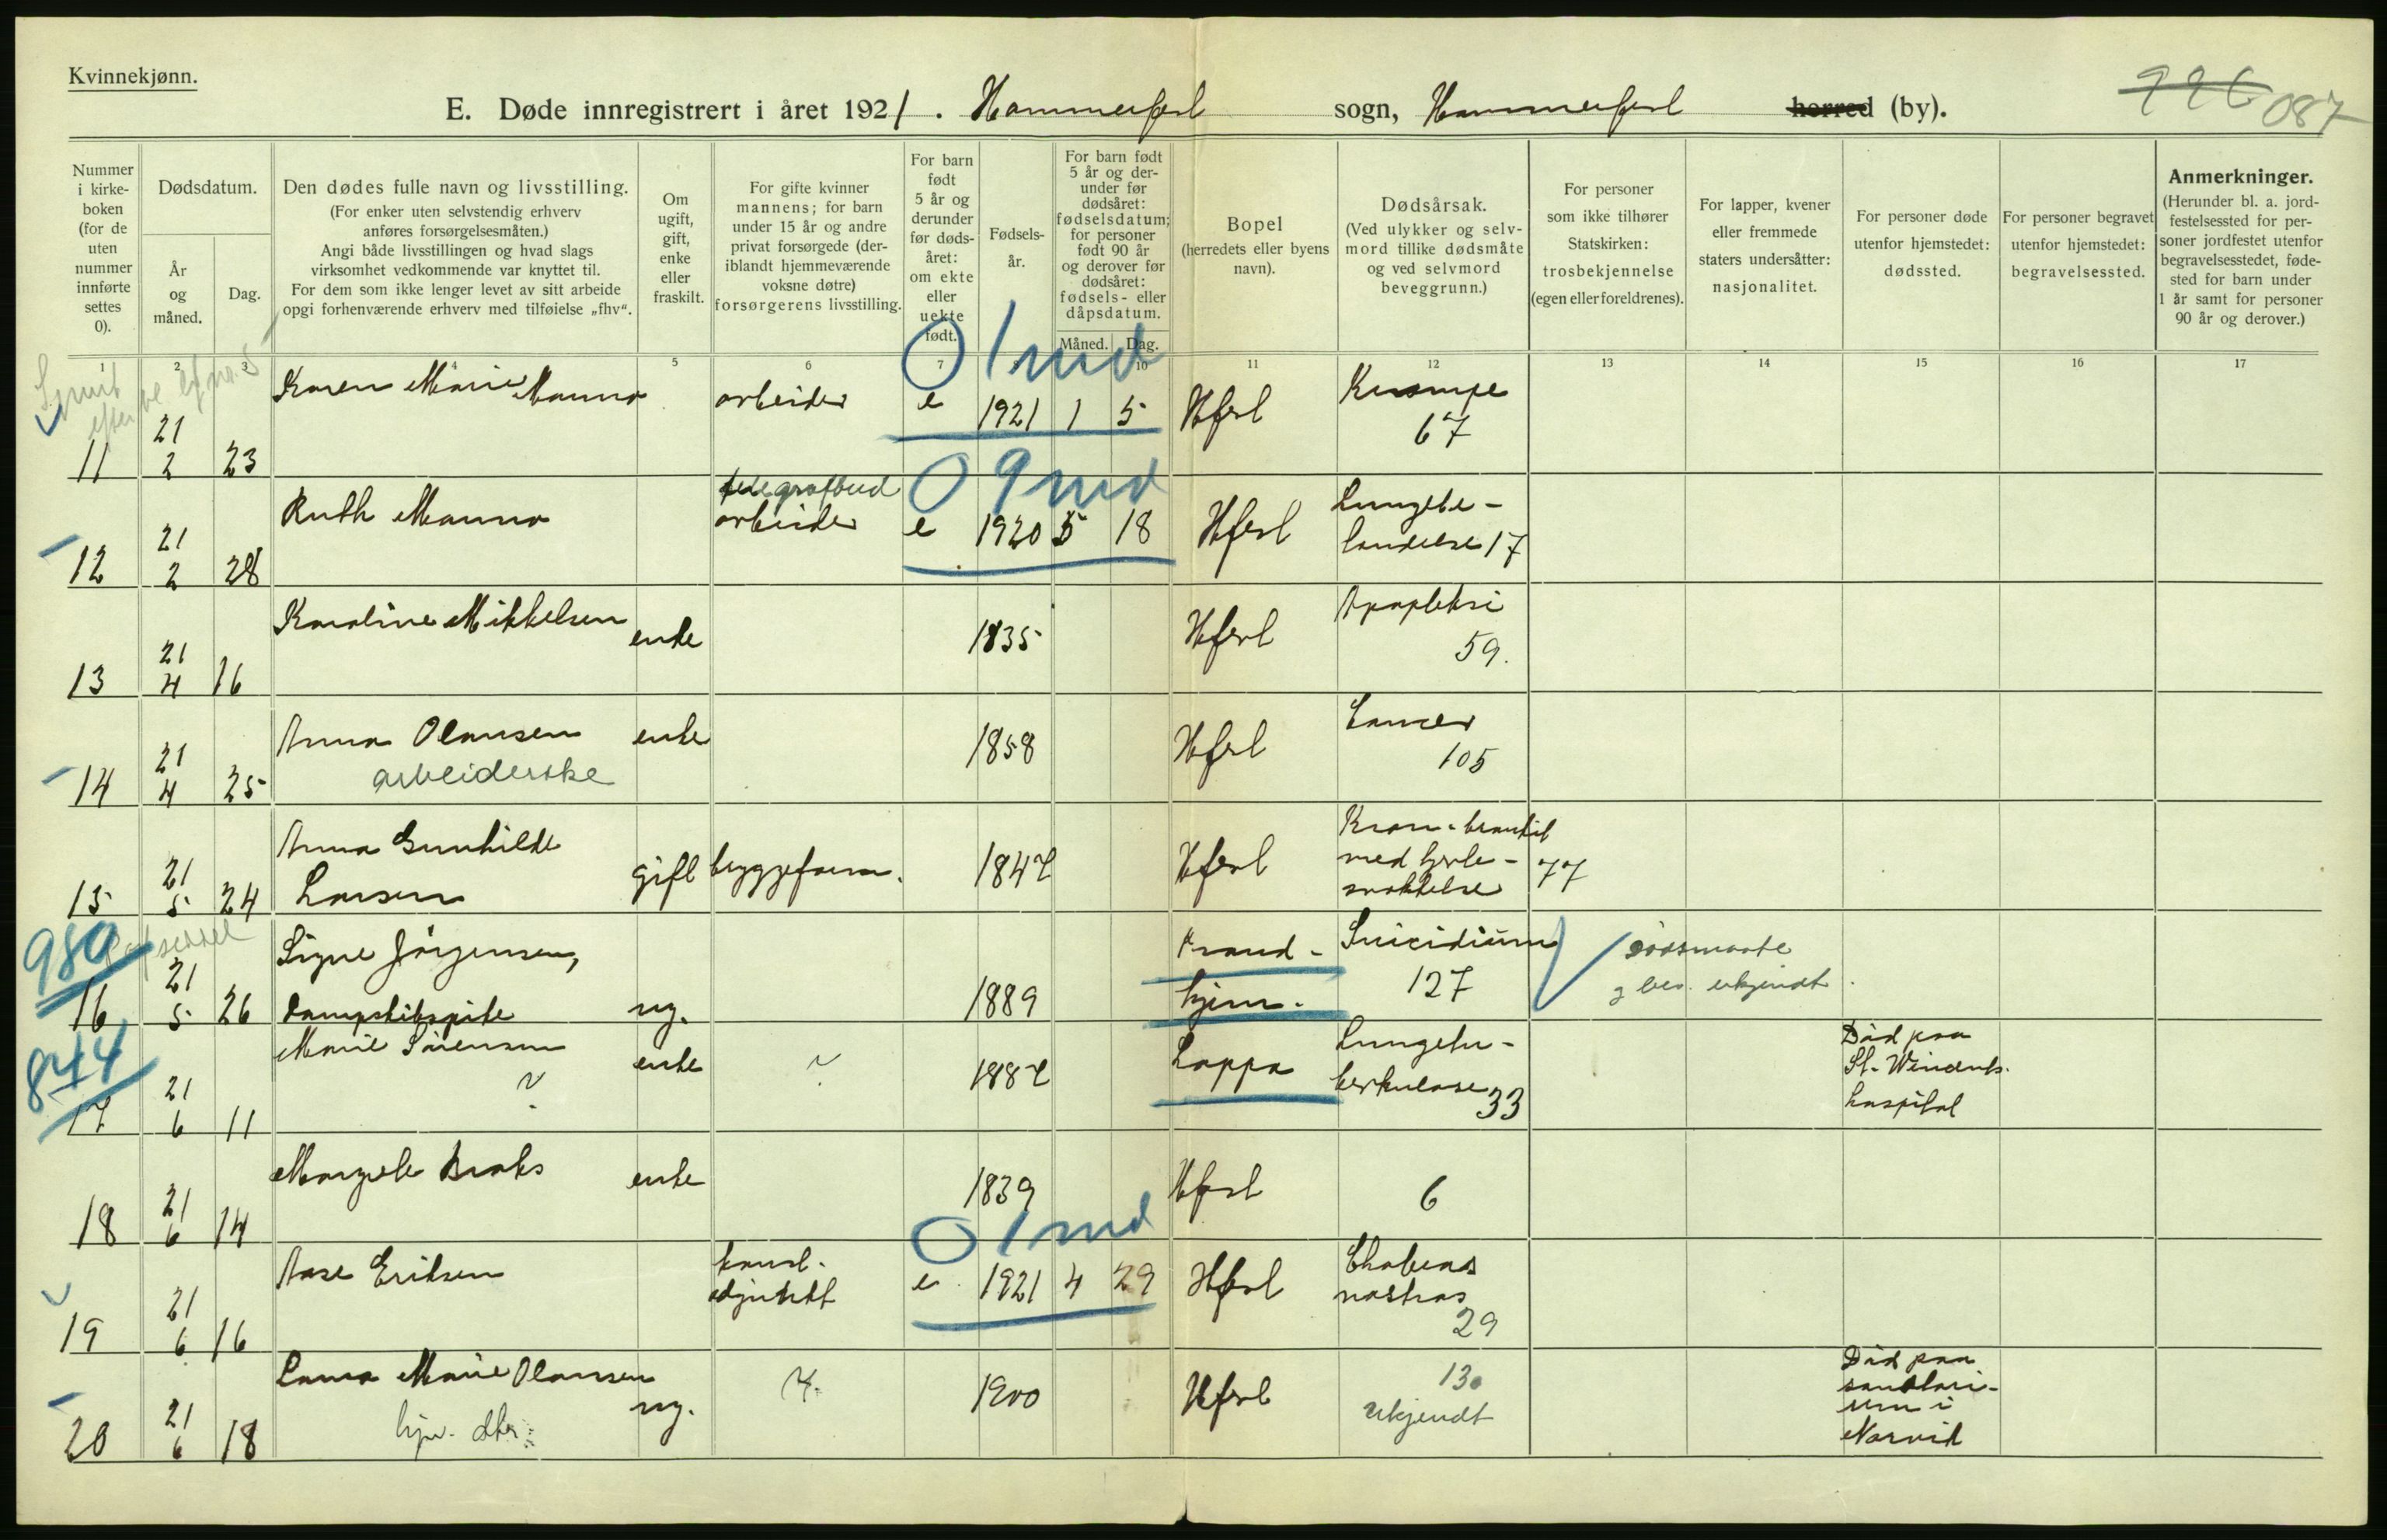 Kvinnekjønn.
E. Døde innregistrert i året 1921. Hammerfest sogn, Hammerfest herred (by).
226 087
Nummer i kirke-boken (for de uten nummer innførte settes 0).
Dødsdatum.
År og måned.
Dag.
Den dødes fulle navn og livsstilling.
(For enker uten selvstendig erhverv anføres forsørgelsesmåten.)
Angi både livsstillingen og hvad slags virksomhet vedkommende var knyttet til.
For dem som ikke lenger levet av sitt arbeide opgi forhenværende erhverv med tilføielse „fhv“.
Om ugift, gift, enke eller fraskilt.
For gifte kvinner mannens; for barn under 15 år og andre privat forsørgede (deriblandt hjemmeværende voksne døtre) forsørgerens livsstilling.
For barn født 5 år og derunder før dødsåret: om ekte eller uekte født.
Fødsels-år.
For barn født 5 år og derunder før dødsåret: fødselsdatum; for personer født 90 år og derover før dødsåret: fødsels- eller dåpsdatum.
Måned. Dag.
Bopel (herredets eller byens navn).
Dødsårsak.
(Ved ulykker og selvmord tillike dødsmåte og ved selvmord beveggrunn.)
For personer som ikke tilhører Statskirken: trosbekjennelse (egen eller foreldrenes).
For lapper, kvener eller fremmede staters undersåtter: nasjonalitet.
For personer døde utenfor hjemstedet: dødssted.
For personer begravet utenfor hjemstedet: begravelsessted.
Anmerkninger.
(Herunder bl. a. jordfestelsessted for personer jordfestet utenfor begravelsesstedet, fødested for barn under 1 år samt for personer 90 år og derover.)
1 2 3 4 5 6 7 10 11 12 13 14 15 16 17
0 1 md
11 21 2 23 Karen Marie Manno arbeider e 1921 1 5 Hfest Krampe 67
0 9 md
12 21 2 28 Ruth Manno telegrafbud arbeider e 1920 5 18 Hfest Lungebe-
tendelse 17
13 21 4 16 Karoline Mikkelsen enke 1835 Hfest Apopleksi 59.
14 21 4 25 Anna Olausen enke 1858 Hfest Cancer 105
arbeiderske
15 21 5 24 Anna Gunhilde
Larsen gift byggeform. 1847 Hfest Kron. bronkit
med hjerte-
svækkelse 77
980
16 21 5 26 Signe Jörgensen,
dampskibspike ug. 1889 Trond-
hjem. Suicidium
127 dödsmaate
g bev. ukjendt.
844
17 21 6 11 Marie Sörensen ? enke ? 1887 Loppa Lungetu-
berkulose 33 Död paa
St. Vincents.
hospital
18 21 6 14 Margrete Braks enke 1839 Hfest 6
0 1 md
19 21 6 16 Aase Eriksen e 1921 4 29 Hfest Cholera
nostras
29
20 21 6 18 Laura Marie Olaussen ug. ?. 1900 Hfest 130
Ukjendt Död paa
sanatori-
um i
Narvik
hjv. dtr.